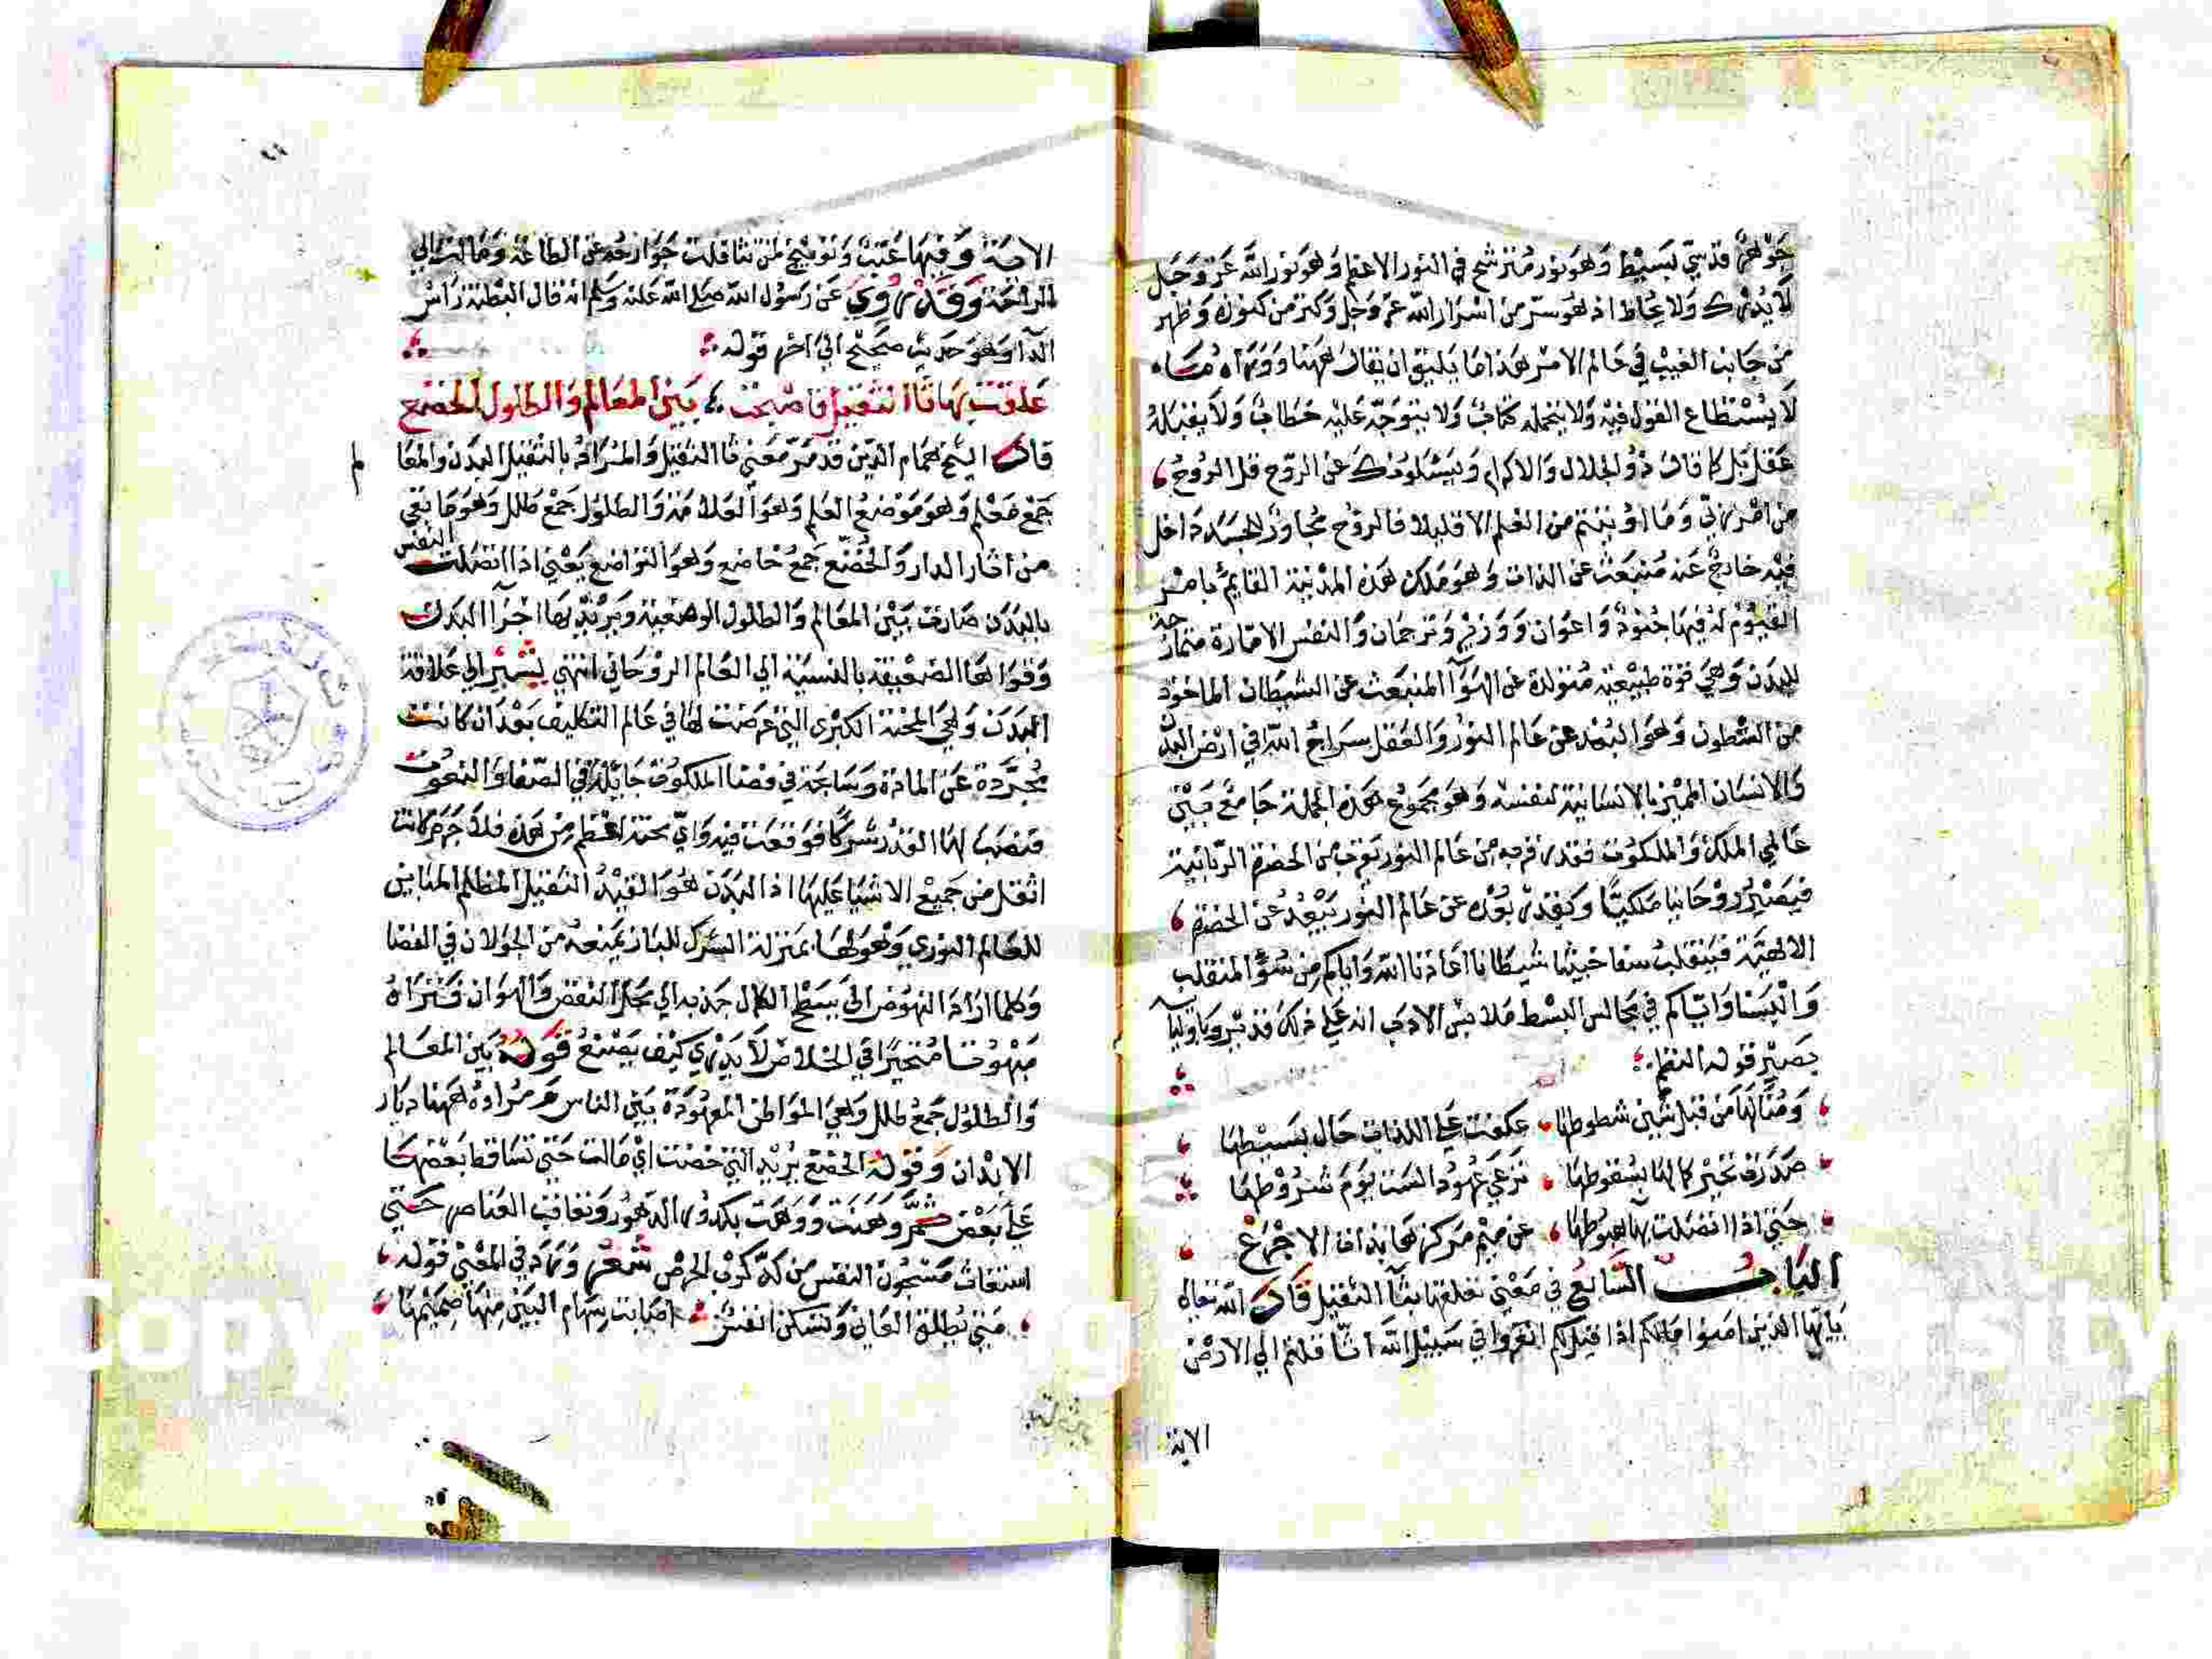 جوهر قدسي بسيط وهو نور مترشح في النور الاعظم وهو نور الله عز وجل
لا يدرك ولا يحاط اذ هو سر من اسرار الله عز وجل وكنز من كنوزه وظهر
من جانب الغيب في عالم الامر هذا ما يليق ان يقال ههنا ووراه
لا يستطاع القول فيه ولا يتحمله كتاب ولا يتوجه عليه خطاب ولا يقبله
عقل بل كما قال ذو الجلال والاكرام ويسئلونك عن الروح قل الروح
من امر ربي وما اوتيتم من العلم الا قليلا فالروح مجاور للجسد داخل
فيه خارج عنه منبعث عن الذات وهو ملك هذه المدنية القايم بامر
القيوم له فيها جنود واعوان ووزير وترجمان والنفس الامارة ممازجة
للبدن وهي قوة طبيعية متولدة عن الهوآ المنبعث عن الشيطان الماخوذ
من الشطون وهو البعد عن عالم النور والعقل سراج الله في ارض البدن
والانسان المميز بالانسانية لنفسه وهو مجموع هذه الجملة جامع بين
عالمي الملك والملكوت فقدر قربه من عالم النور يقرب من الحضرة الربانية
فيصير روحانيا ملكيا وبقدر بعده عن عالم النور يبعد عن الحضرة
الالهية فينقلب سفا خبيثا شيطانا اعاذنا الله واياكم من سؤ المنقلب
والبسنا واياكم في مجالس البسط ملابس الادب انه على ذلك قدير وباوليآ
بصير قوله النظم
ومنالها من قبل شين شطوطها عكفت على اللذات حال بسيطها
صدرت تخبر كالها بسقوطها ترعى عهود الست يوم شروطها
حتى اذا اتصلت بهآ هبوطها عن ميم مركزها بذات الاجرع
الباب السابع في معنى تعلقها بثآ الثقيل قال الله تعالى
يايها الذين امنوا مالكم اذا قيل لكم انفروا في سبيل الله اثاقلتم الى الارض
الاية
الاية وفيها عتب وتوبيخ لمن تثاقلت جوارحه عن الطاعة ومالت الى
الراحة وقد روي عن رسول الله صلى الله عليه وسلم انه قال البطنة راس
الدآ وهو حديث صحيح الى اخر قوله
علقت بها ثا الثقيل فاصبحت بين المعالم والطلول الخضع
قال الشيخ همام الدين قد مر معنى ثا الثقيل والمراد بالثقيل البدن والمعا
لم
جمع معلم وهو موضع العلم وهو العلامة والطلول جمع طلل وهو ما بقي
من اثار الدار والخضع جمع خاضع وهو التواضع يعني اذا اتصلت النفس
بالبدن صارت بين المعالم والطلول الوضعية ويريد بها اجزآ البدن
وقواها الضعيفة بالنسبة الى العالم الروحاني انتهى يشير الى علاقة
البدن وهي المحنة الكبرى التي عرضت لها في عالم التكليف بعد ان كانت
مجردة عن المادة وسابحة في فضا الملكوت جايلة في الصفا والنعوت
فنصب لها القدر شركا فوقعت فيه واي محنة اعظم من هذه فلا جرم كانت
اثقل من جميع الاشيا عليها اذ البدن هو القيد الثقيل المظلم المباين
للعالم النوري وهو لها بمنزلة الشرك للباز يمنعه من الجولان في الفضا
وكلما اراد النهوض الى بسط الكمال جذبه الى محل النقص والهوان فتراه
مبهوتا متحيرا في الخلاص لا يدري كيف يصنع قوله بين المعالم
والطلول جمع طلل وهي المواطن المعهودة بين الناس ومراده ههنا ديار
الابدان وقوله الخضع يريد التي خضعت اي مالت حتى تساقط بعضها
على بعض ثم وهنت ووهت بكدور الدهور وتعاقب العناصر حتى
استغاث مسجون النفس من كد كرب الحرص شعر وزاد في المعنى قوله
متى يطلق العاني وتسكن انفس اصابت سهام البين منها صميمها